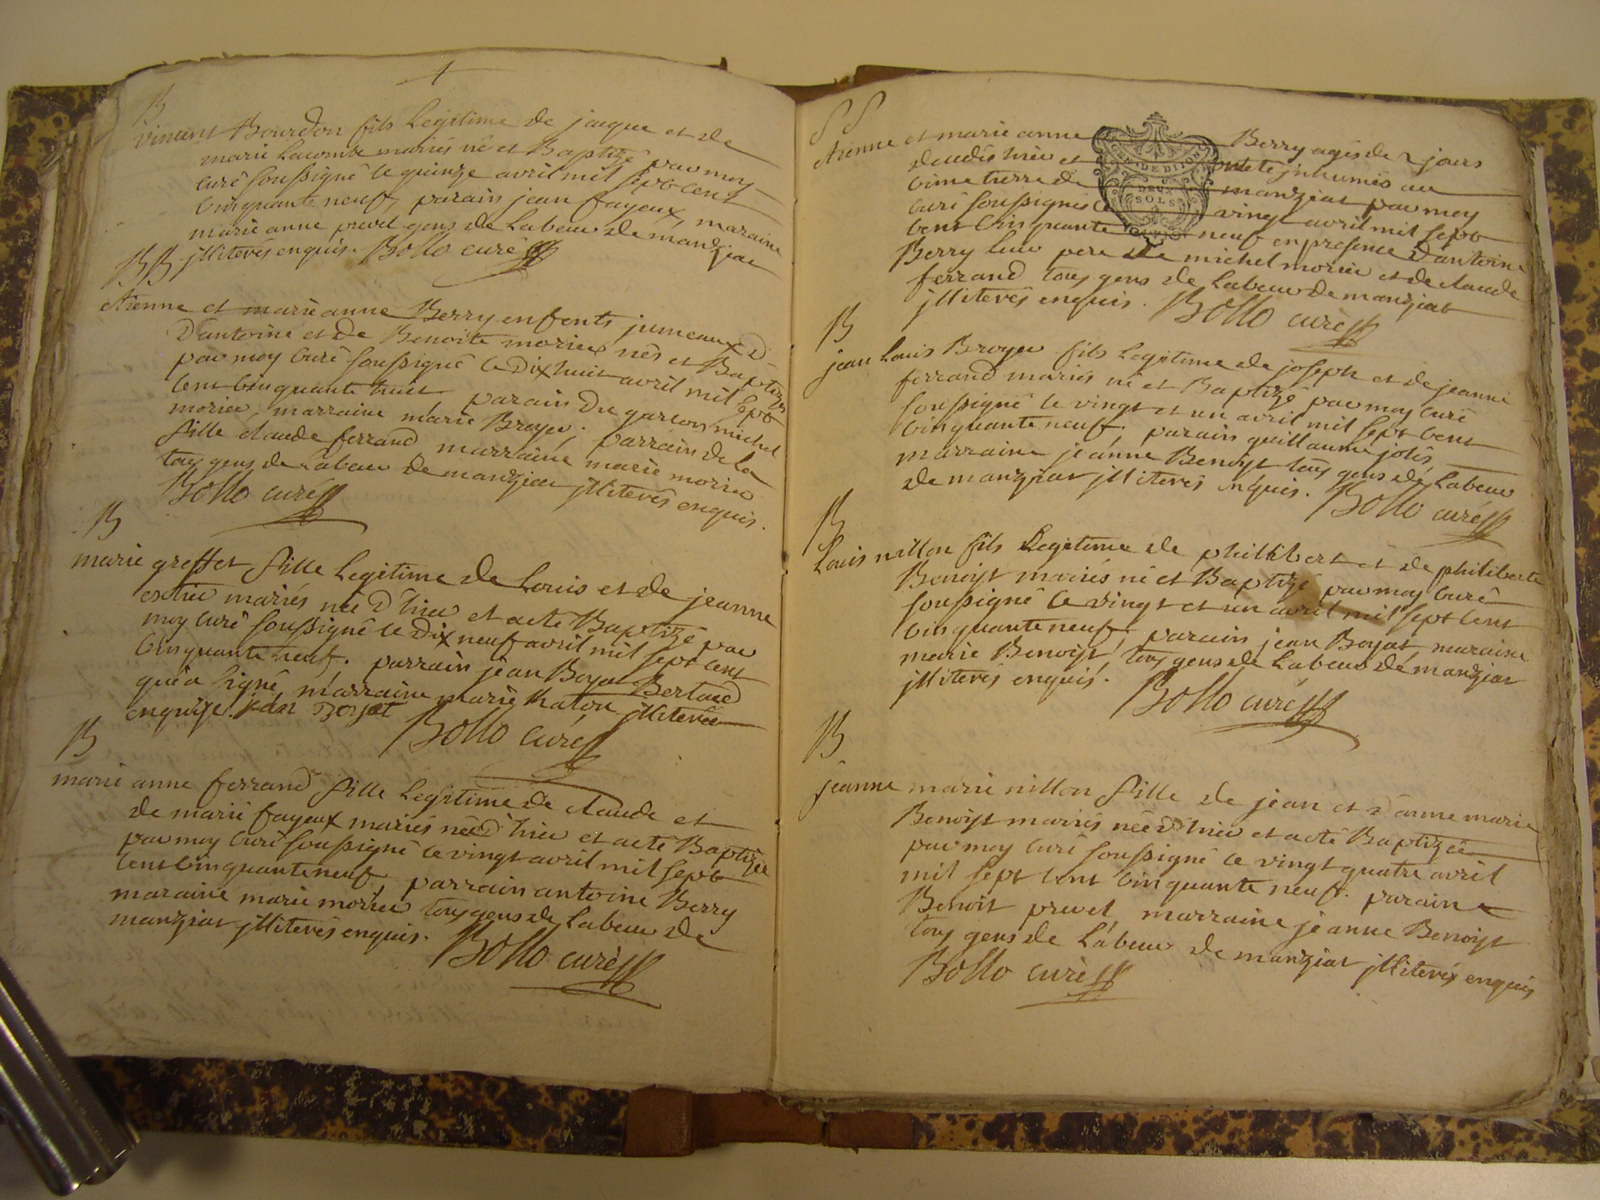 B
vincent Bourdon fils Legitime de jaque et de
marie Lacombe mariés né et Baptizé par moy
curé soussigné le quinze avril mil sept cent
cinquante neuf, parain jean fayeux, maraine
marie anne prevel gens de Labeur de manziat
jlliterés enquis. Bollo curé
BB
etienne et marie anne Berry enfents jumeaux
D'antoine et de Benoite morier nés et Baptizés
par moy curé soussigné le Dix huit avril mil sept
cent cinquante huit parain du garcon michel
morier, marraine marie Broyer. parrain de la
fille claude ferrand marraine marie morier
tous gens de Labeur de manziat jlliterés enquis.
Bollo curé
B
marie greffet fille Legitime de Louis et de jeanne
mariés née d'hier et a eté Baptizé par
moy curé soussigné le Dix neuf avril mil sept cent
cinquante neuf. parrain jean Boyat Bertaud
qui a signé, marraine marie Katon jlliterée
enquise. jean Boyat Bollo curé
B
marie anne ferrand fille Legitime de claude et
de marie fayeux mariés née d'hier et a eté Baptizée
par moy curé soussigné le vingt avril mil sept
cent cinquante neuf parrain antoine Berry
maraine marie morier tous gens de Labeur de
manziat jlliterés enquis. Bollo curé
SS
etienne et marie anne Berry agés de 2 jours
decedés hier et ont eté jnhumés au
cimetierre de manziat par moy
curé soussigné le vingt avril mil sept
cent cinquante neuf en presence d'antoine
Berry leur pere de michel morier et de claude
ferrand tous gens de Labeur de manziat
jlliterés enquis. Bollo curé
GEN. DE DIJON
DEUX
SOLS
B
jean Louis Broyer fils Legitime de joseph et de jeanne
ferrand mariés né et Baptizé par moy curé
soussigné le vingt et un avril mil sept cent
cinquante neuf. parain guillaume joly
marraine jeanne Benoist tous gens de Labeur
de manziat jlliterés enquis. Bollo curé
B
Louis nillon fils Legitime de philibert et de philiberte
Benoist mariés né et Baptizé par moy curé
soussigné le vingt et un avril mil sept cent
cinquante neuf. parain jean Boyat, maraine
marie Benoist, tous gens de Labeur de manziat
jlliterés enquis. Bollo curé
B
jeanne marie nillon fille de jean et d'anne marie
Benoist mariés née d'hier et a eté Baptizée
par moy curé soussigné le vingt quatre avril
mil sept cent cinquante neuf. parain
Benoit prevel, marraine jeanne Benoist
tous gens de Labeur de manziat jlliterés enquis
Bollo curé